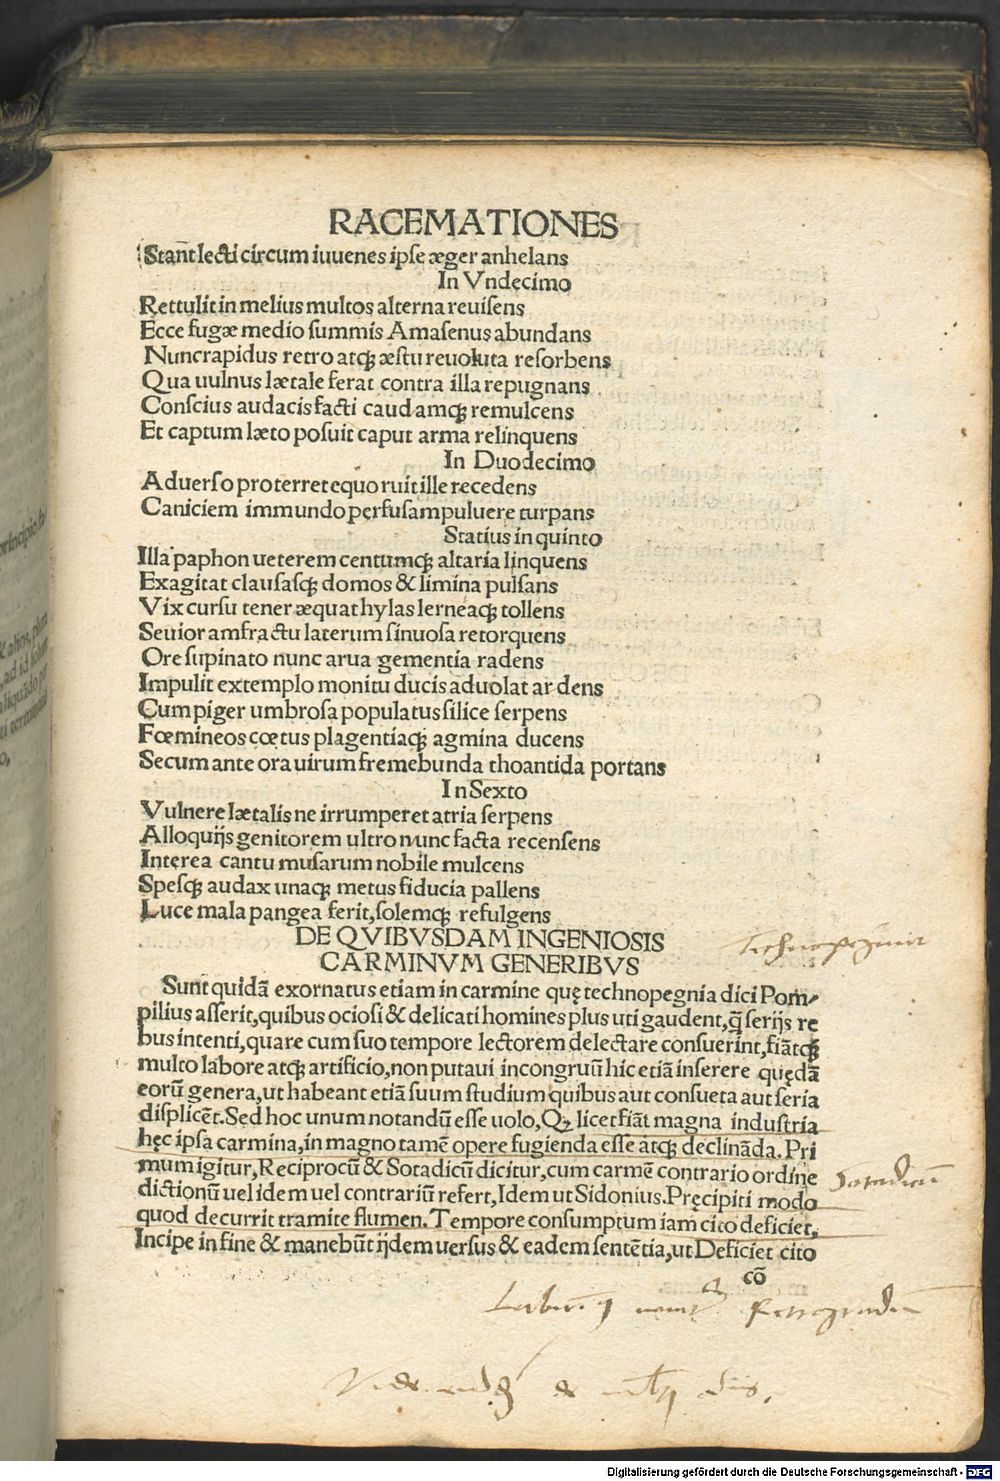 RACEMATIONES
Stant̄ lecti circum iuuenes ipse æger anhelans
In Vndecimo
Rettulit in melius multos alterna reuisens
Ecce fugæ medio summis Amasenus abundans
Nunc rapidus retro atqꝫ æstu reuoluta resorbens
Qua uulnus lætale ferat contra illa repugnans
Conscius audacis facti caudamqꝫ remulcens
Et captum læto posuit caput arma relinquens
In Duodecimo
Aduerso proterret equo ruit ille recedens
Caniciem immundo perfusam puluere turpans
Statius in quinto
Illa paphon ueterem centumqꝫ altaria linquens
Exagitat clausasqꝫ domos & limina pulsans
Vix cursu tener æquat hylas lerneaqꝫ tollens
Seuior amfractu laterum sinuosa retorquens
Ore supinato nunc arua gementia radens
Impulit extemplo monitu ducis aduolat ardens
Cum piger umbrosa populatus silice serpens
Fœmineos cœtus plagentiaqꝫ agmina ducens
Secum ante ora uirum fremebunda thoantida portans
In Sexto
Vulnere lætalis ne irrumperet atria serpens
Alloquijs genitorem ultro nunc facta recensens
Interea cantu musarum nobile mulcens
Spesqꝫ audax unaqꝫ metus fiducia pallens
Luce mala pangea ferit, solemqꝫ refulgens
DE QVIBVSDAM INGENIOSIS
CARMINVM GENERIBVS
Sunt quidā exornatus etiam in carmine quę technopegnia dici Pom⸗
pilius asserit, quibus ociosi & delicati homines plus uti gaudent, q̄ serijs re
bus intenti, quare cum suo tempore lectorem delectare consuerint, fiātqꝫ
multo labore atqꝫ artificio, non putaui incongruū hic etiā inserere quędā
eorū genera, ut habeant etiā suum studium quibus aut consueta aut seria
displicēt. Sed hoc unum notandū esse uolo, Qꝫ licet fiāt magna industria
hęc ipsa carmina, in magno tamē opere fugienda esse atqꝫ declināda. Pri
mum igitur, Reciprocū & Sotadicū dicitur, cum carmē contrario ordine
dictionū uel idem uel contrariū refert, Idem ut Sidonius. Pręcipiti modo
quod decurrit tramite flumen. Tempore consumptum iam cito deficiet,
Incipe in fine & manebūt ijdem uersus & eadem sentētia, ut Deficiet cito
cō
Sotadicū